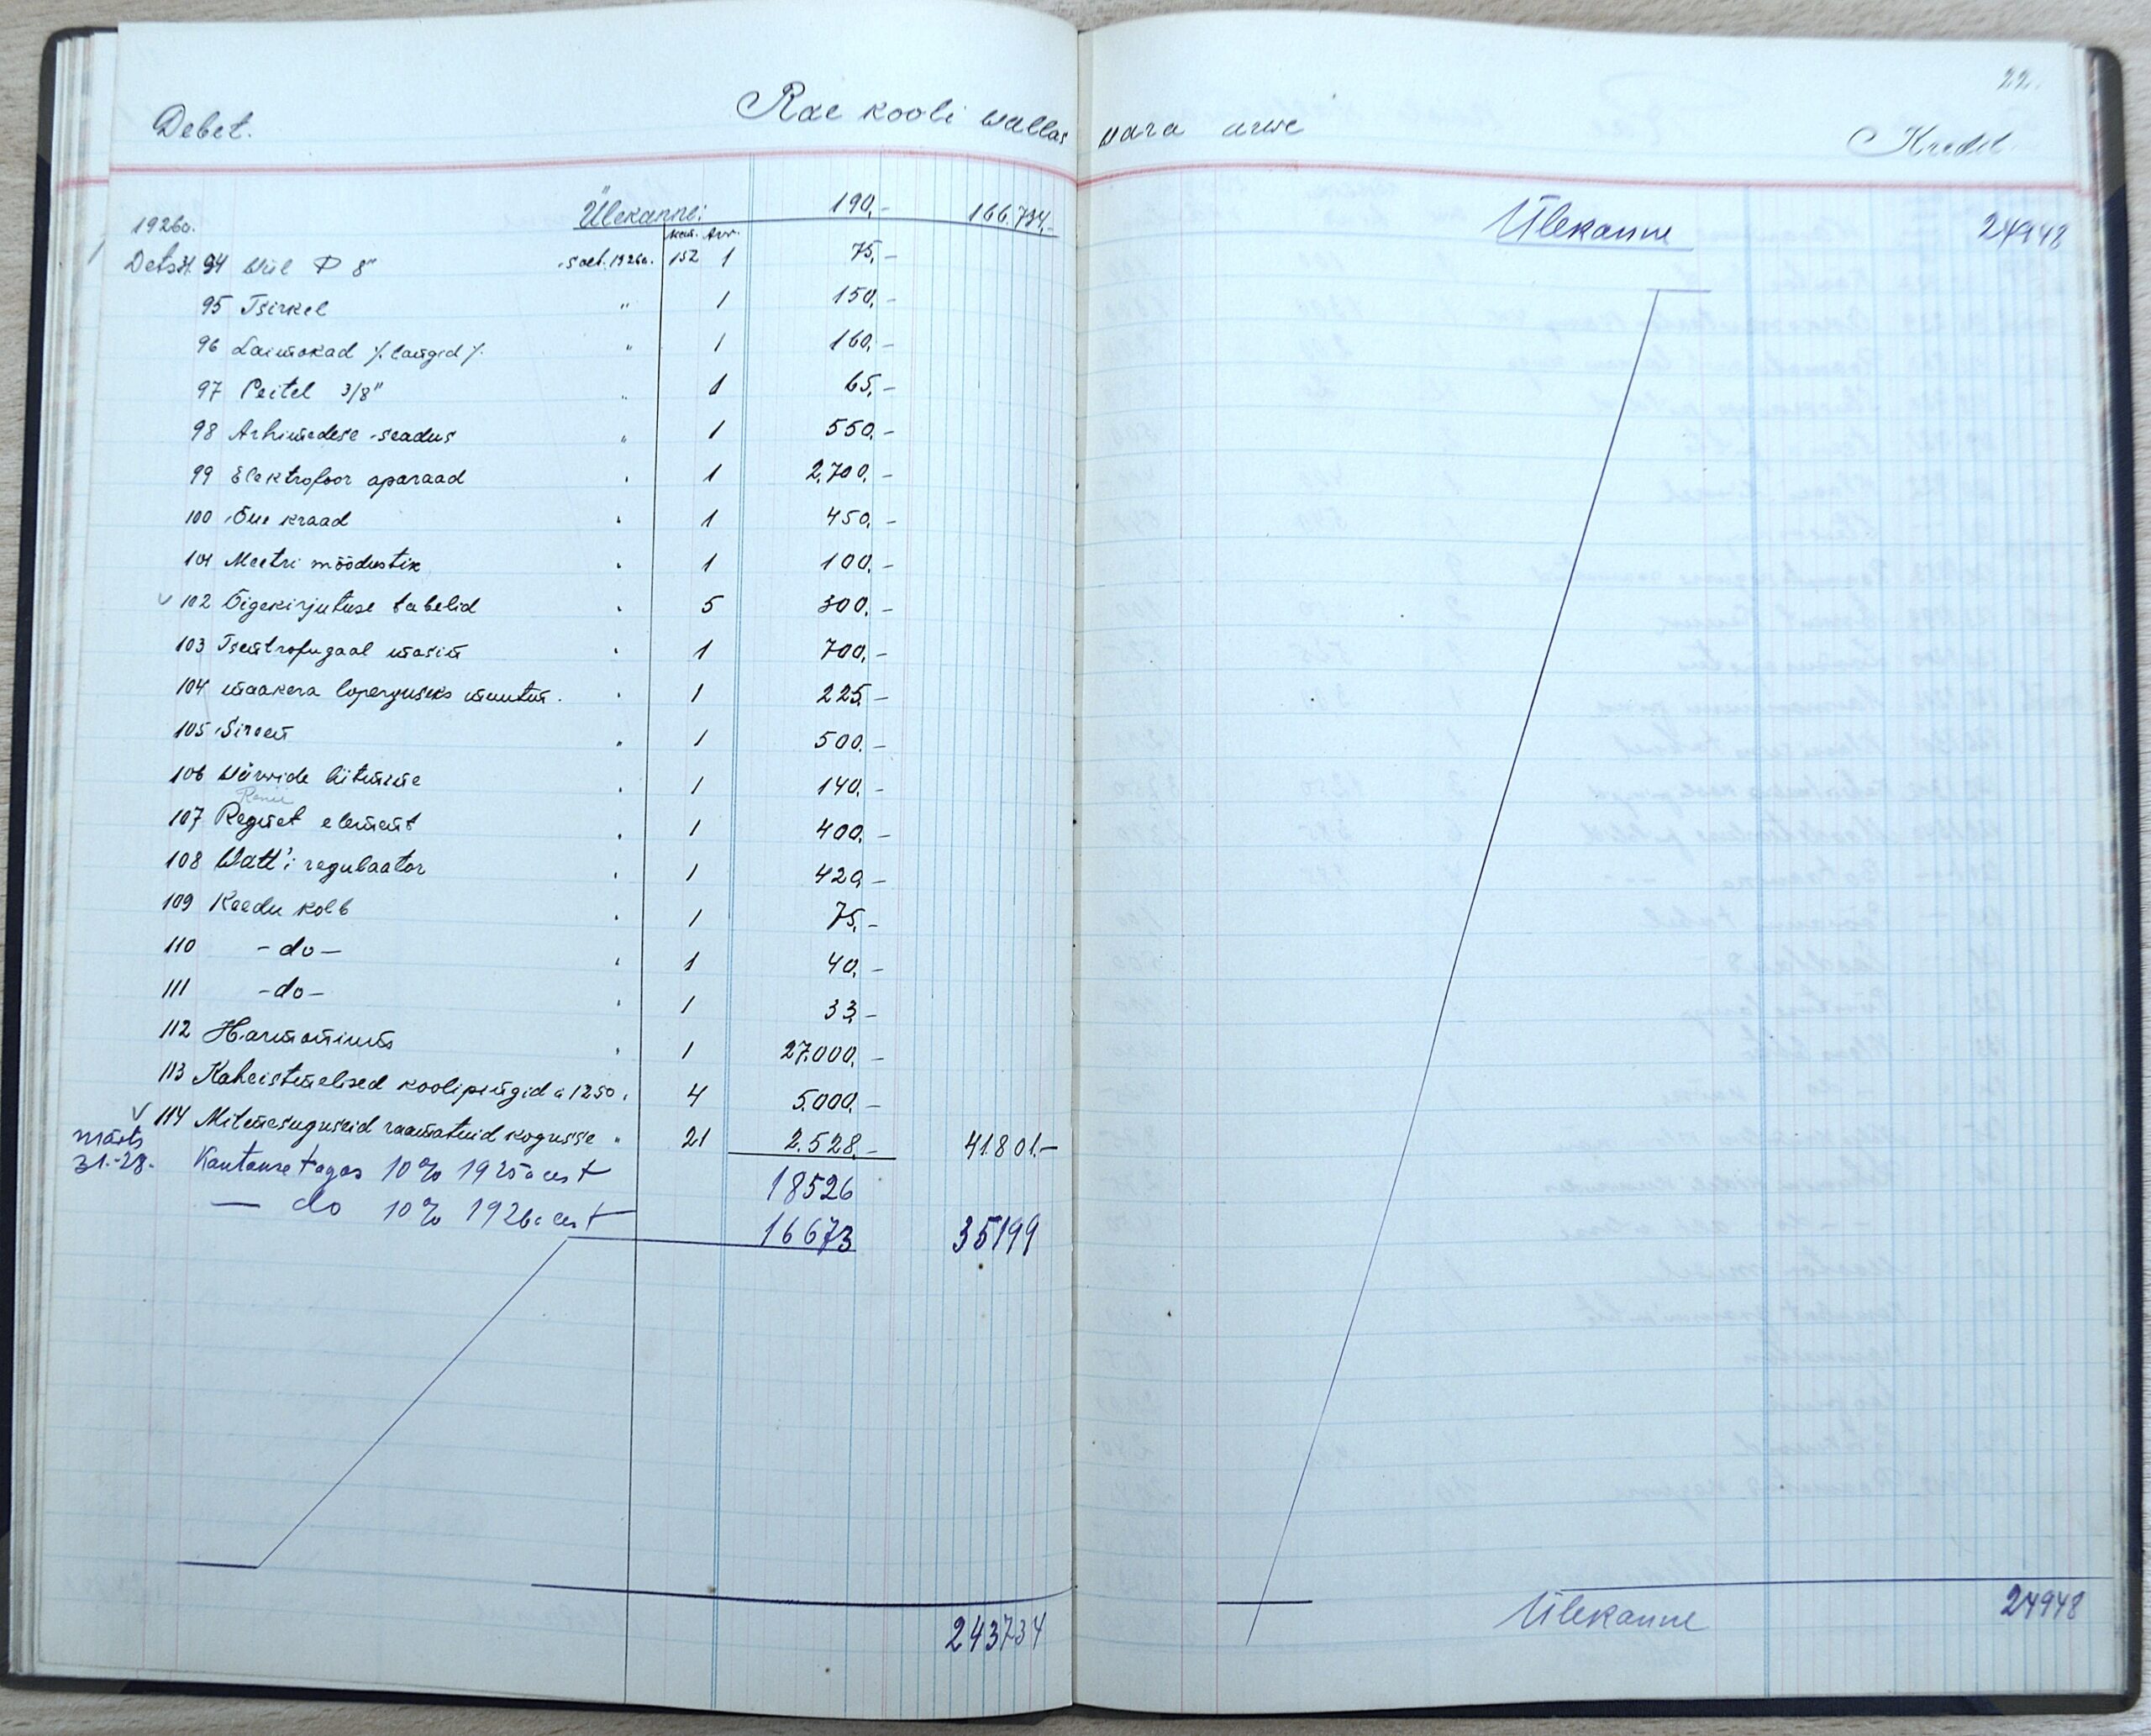 22.
Debet. Rae kooli wallas wara arwe Kredit
Ülekanne: 190,- 166.734,-
1926a. kat. Arv.
Dets 31. 94 Wiil 8" soet. 1926a. 152 1 75,-
95 Tsirkel " 1 150,-
96 Laimokad /. langid /. " 1 160,-
97 Peitel 3/8" " 1 65,-
98 Arhimedese-seadus " 1 550,-
99 Elektrofoor aparaad " 1 2.700,-
100 Õue kraad " 1 450,-
101 Meetri mõõdustik " 1 100,-
✓ 102 Õigekirjutuse tabelid " 5 300,-
103 Tsentrofugaal masin " 1 700,-
104 maakera loperguseks muutm. " 1 225,-
105 Sireen " 1 500,-
106 Wärwide liitmine " 1 140,-
107 Regnet element " 1 400,-
108 Watt'i regulaator " 1 420,-
109 Keedu kolb " 1 75,-
110 -do- " 1 40,-
111 -do- " 1 33,-
112 Harmonium " 1 27.000,-
113 Kaheistmelised koolipingid a 1250 " 4 5.000,-
✓ 114 Mitmesuguseid raamatuid kogusse " 21 2.528,- 41.801.-
märts
31.-28. Kantanse tagas 10% 1925a eest 18526
— do 10% 1926a eest 16673 35199
243734
Ülekanne 24948
Ülekanne 24948